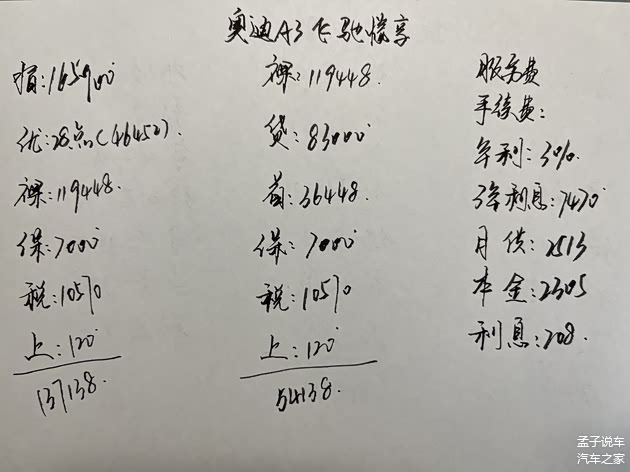 奥迪A3飞驰悦享
指:165900
优:28点(46452).
裸:119448.
保:7000
税:10570
上:120
137138.
裸:119448.
贷:83000
首:36448.
保:7000
税:10570
上:120
54138.
服务费
手续费:
年利:3%.
3年利息:7470
月供:2513
本金:2305
利息:208.
孟子说车
汽车之家